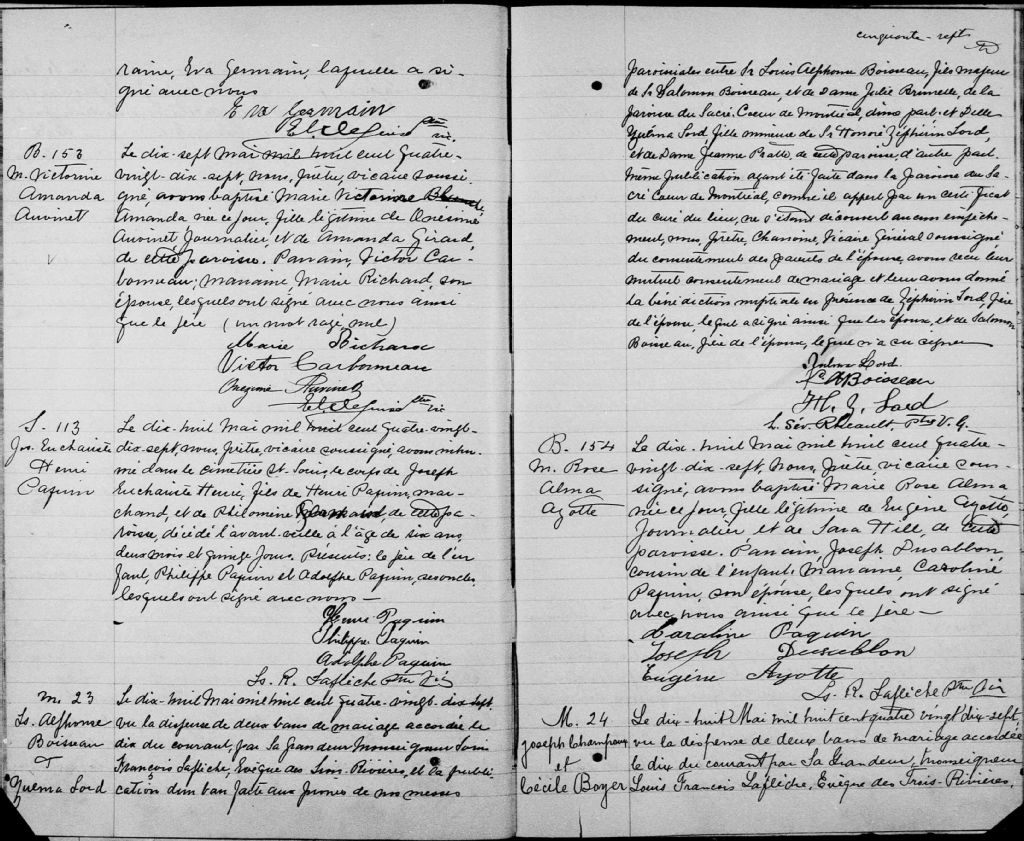 raine, Eva Germain, laquelle a si-
gné avec nous
Eva Germain
B. 153
M. Victorine
Amanda
Auvinet
Le dix-sept Mai mil huit cent quatre-
vingt-dix-sept, nous, prêtre, vicaire soussi-
gné, avons baptisé Marie Victorine
Amanda née ce jour, fille légitime de Onésime
Auvinet, journalier et de Amanda Girard,
de cette paroisse. Parrain, Victor Car-
bonneau; marraine, Marie Richard, son
épouse, lesquels ont signé avec nous ainsi
que le père (un mot rayé nul)
Marie Richard
Victor Carbonneau
Onezime Auvinet
S. 113
Jos. Euchariste
Henri
Paquin
Le dix-huit Mai mil huit cent quatre-vingt-
dix-sept, nous, prêtre, vicaire soussigné, avons inhu-
mé dans le cimetière St. Louis, le corps de Joseph
Euchariste Henri, fils de Henri Paquin, mar-
chand, et de Philomène de cette pa-
roisse, décédé l'avant-veille à l'âge de six ans,
deux mois et quinze jours. Présents: le père de l'en
fant, Philippe Paquin et Adolphe Paquin, ses oncles,
lesquels ont signé avec nous —
Henri Paquin
Philippe Paquin
Adolphe Paquin
Ls. R. Laflèche Ptre Vic
M. 23
Ls. Alphonse
Boisseau
&
Zulma Lord
Le dix-huit Mai mil huit cent quatre-vingt-dix-sept,
vu la dispense de deux bans de mariage accordée le
dix du courant, par Sa Grandeur Monseigneur Louis
François Laflèche, Evêque des Trois-Rivières, et la publi-
cation d'un ban faite aux prônes de nos messes
cinquante-sept
paroissiales entre Sr Louis Alphonse Boisseau, fils majeur
de Sr Salomon Boisseau, et de Dame Julie Brunelle, de la
paroisse du Sacré Cœur de Montréal, d'une part, et Delle
Zulma Lord, fille mineure de Sr Honoré Zéphirin Lord,
et de Dame Jeanne Pratte, de cette paroisse, d'autre part.
Même publication ayant été faite dans la paroisse du Sa-
cré Cœur de Montréal, comme il appert par un certificat
du curé du lieu, ne s'étant découvert aucun empêche-
ment, nous, Prêtre, Chanoine, Vicaire Général soussigné
du consentement des parents de l'épouse, avons reçu leur
mutuel consentement de mariage et leur avons donné
la bénédiction nuptiale en présence de Zéphirin Lord, père
de l'épouse, lequel a signé ainsi que les époux, et de Salomon
Boisseau, père de l'époux, lequel n'a su signer
Zulma Lord.
L. A Boisseau
H. Z. Lord
L. Sév. Rheault, Ptre V. G.
B. 154
M. Rose
Alma
Ayotte
Le dix-huit Mai mil huit cent quatre-
vingt-dix-sept, Nous, prêtre, vicaire sous-
signé, avons baptisé Marie Rose Alma
née ce jour, fille légitime de Eugène Ayotte,
journalier et de Sara Hill, de cette
paroisse. Parrain, Joseph Dusablon
cousin de l'enfant; Marraine, Caroline
Paquin, son épouse, lesquels ont signé
avec nous ainsi que le père —
Caroline Paquin
Joseph Dusablon
Eugène Ayotte
Ls. R. Laflèche Ptre Vic
M. 24
Joseph Champoux
et
Cécile Boyer
Le dix-huit Mai mil huit cent quatre vingt dix-sept,
vu la dispense de deux bans de mariage accordée
le dix du courant par Sa Grandeur, Monseigneur
Louis François Laflèche, Evêque des Trois-Rivières,